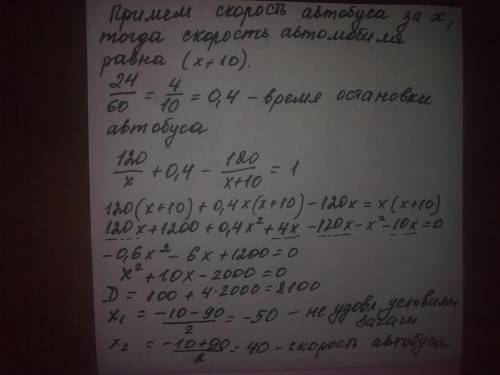 Примем скорость автобуса за x,
тогда скорость автомобиля
равна (x+10).
24/60 = 4/10 = 0,4 - время остановки
автобуса
120/x + 0,4 - 120/(x+10) = 1
120(x+10) + 0,4x(x+10) - 120x = x(x+10)
120x + 1200 + 0,4x² + 4x - 120x - x² - 10x = 0
-0,6x² - 6x + 1200 = 0
x² + 10x - 2000 = 0
D = 100 + 4·2000 = 8100
x₁ = (-10-90)/2 = -50 - не удовл. условиям
задачи
x₂ = (-10+90)/2 = 40 - скорость автобуса